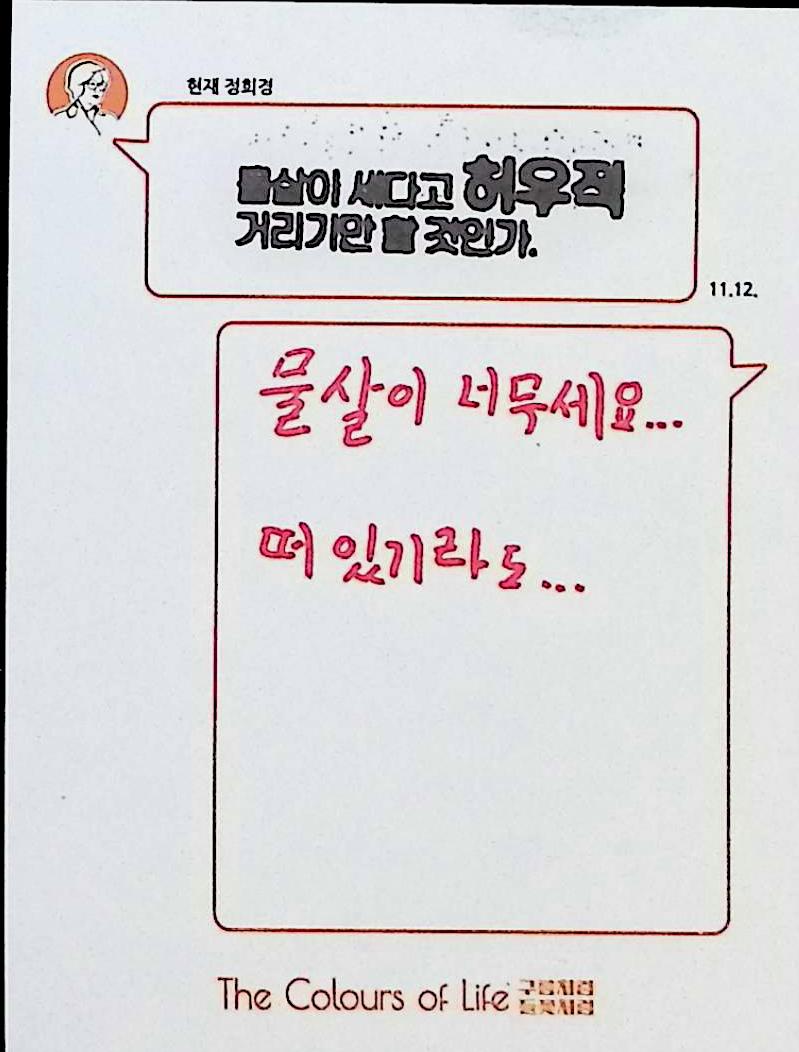 현재 정희경
물살이 세다고 허우적
거리기만 할 것인가.
11.12.
물살이 너무세요...
떠 있기라도...
The Colours of Life